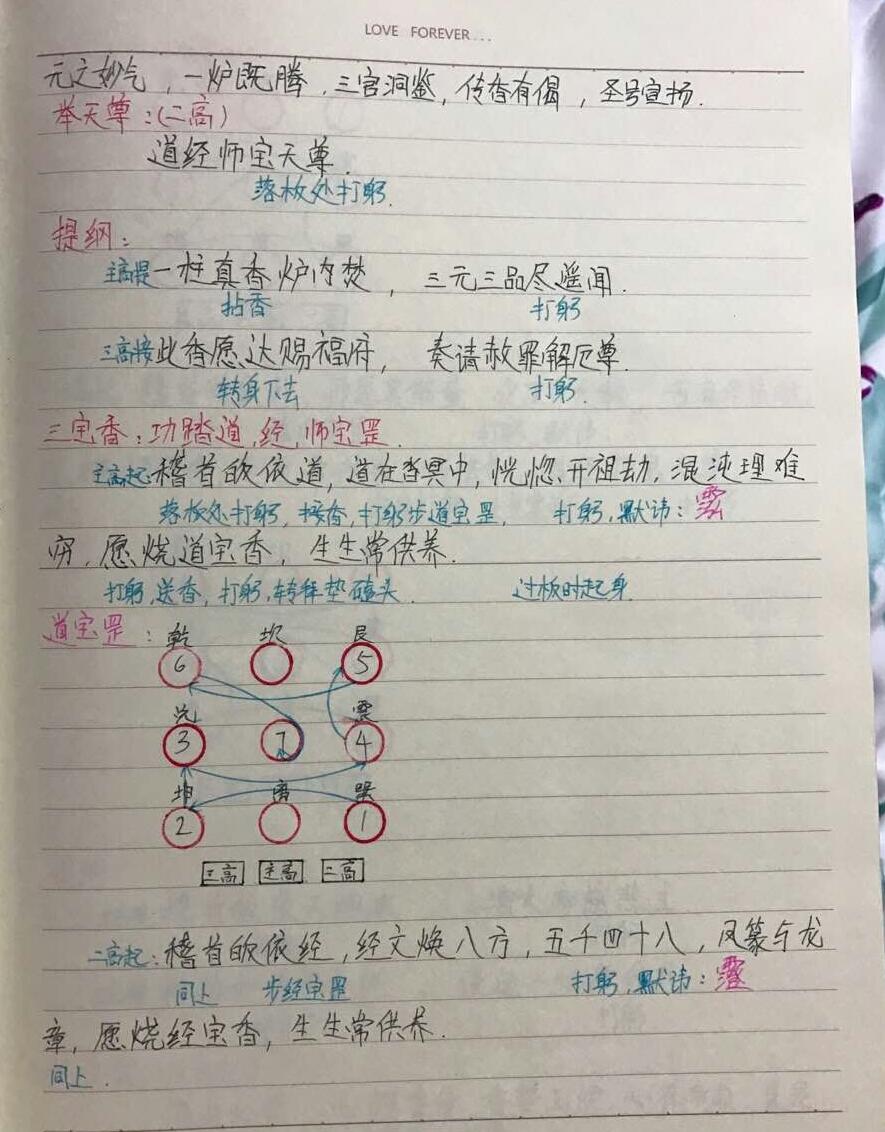 LOVE FOREVER...
元之妙气，一炉既腾，三宫洞鉴，传香有偈，圣号宣扬.
举天尊：(二高)
道经师宝天尊.
落板处打躬.
提纲：
主高提一柱真香炉内焚，三元三品尽遥闻.
拈香 打躬
三高接此香愿达赐福府，奏请赦罪解厄尊.
转身下去 打躬.
三宝香：功踏道,经,师宝罡.
主高起:稽首皈依道，道在杳冥中，恍惚开祖劫，混沌理难
落板处打躬，接香，打躬步道宝罡， 打躬，默讳：
穷，愿烧道宝香，生生常供养.
打躬,送香，打躬，转拜垫磕头. 过板时起身.
道宝罡： 乾 坎 艮
6 5
兑 震
3 7 4
坤 离 巽
2 1
三高 主高 二高
二高起：稽首皈依经，经文焕八方，五千四十八，凤篆与龙
同上 步经宝罡 打躬，默讳：
章，愿烧经宝香，生生常供养.
同上.